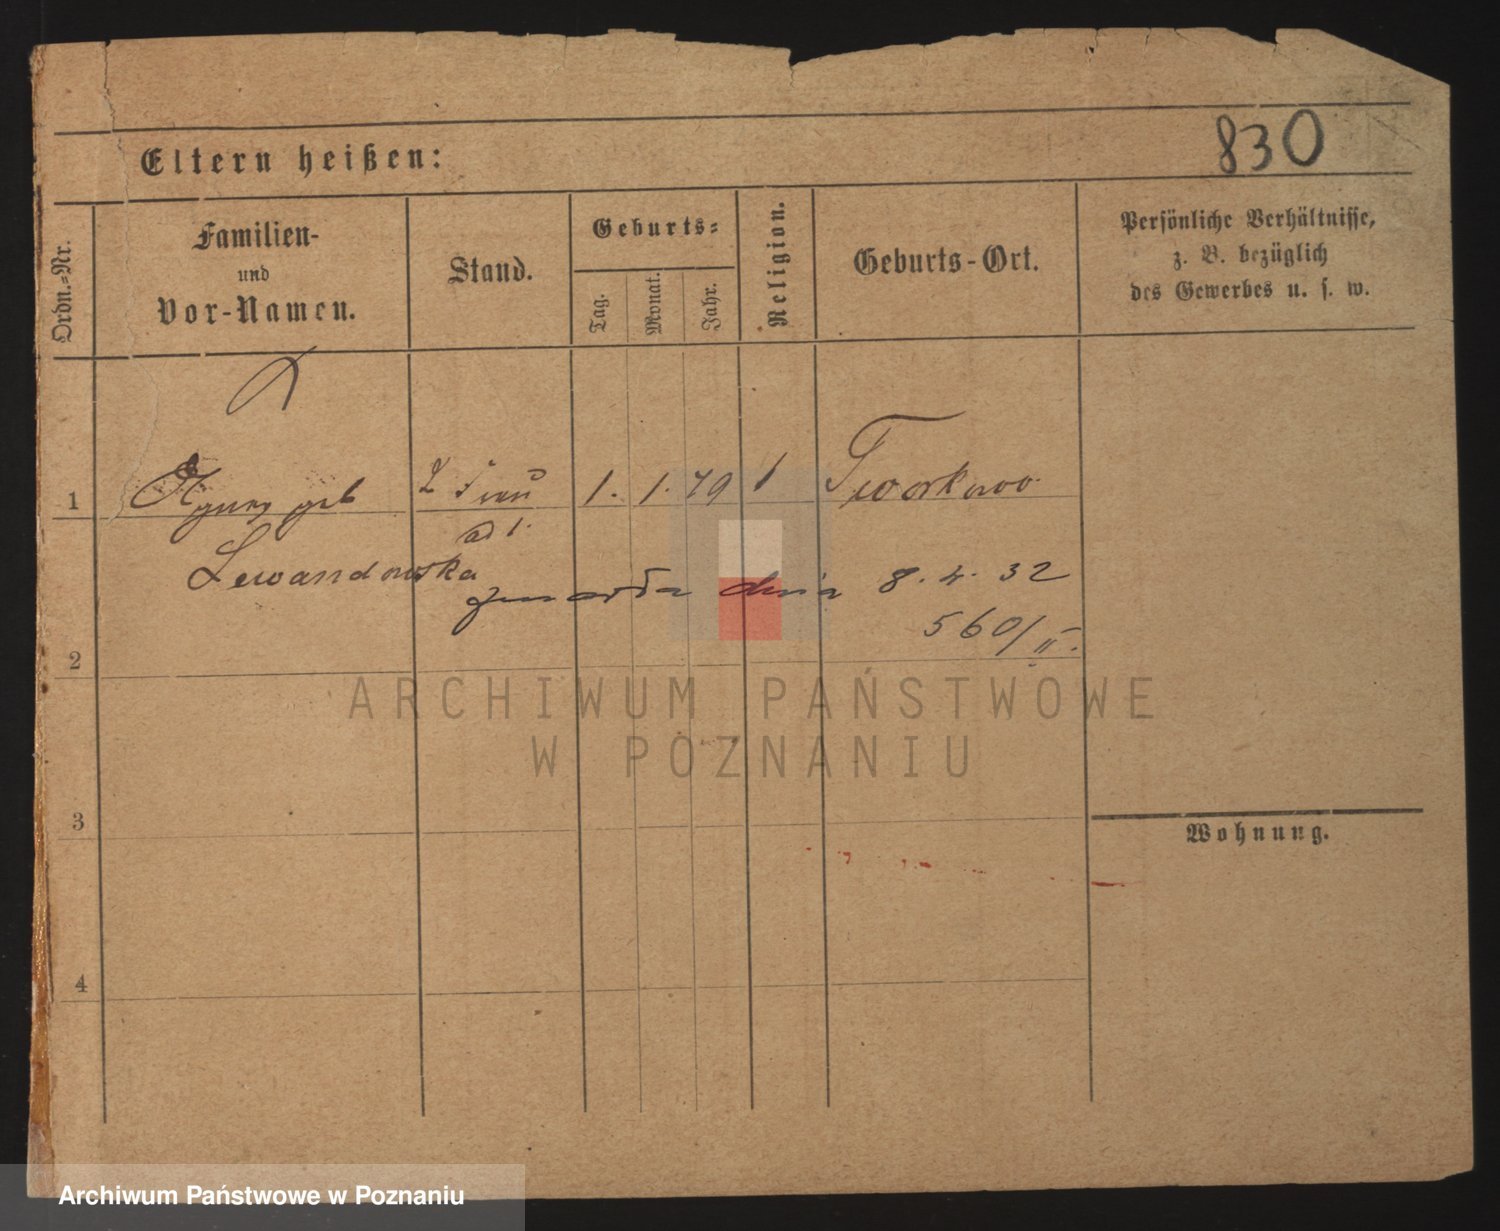 830
Eltern heißen:
Ordn.-Nr.
Familien-
und
Vor-Namen.
Stand.
Geburts-
Tag.
Monat.
Jahr.
Religion.
Geburts-Ort.
Persönliche Verhältnisse,
z. B. bezüglich
des Gewerbes u. s. w.
1 geb 2 Frau 1. 1. 79 1 Tworkowo
ad 1.
Lewandowska
zmarła dnia 8.4.32
560/II.
2
ARCHIWUM PAŃSTWOWE
W POZNANIU
3
Wohnung.
4
Archiwum Państwowe w Poznaniu